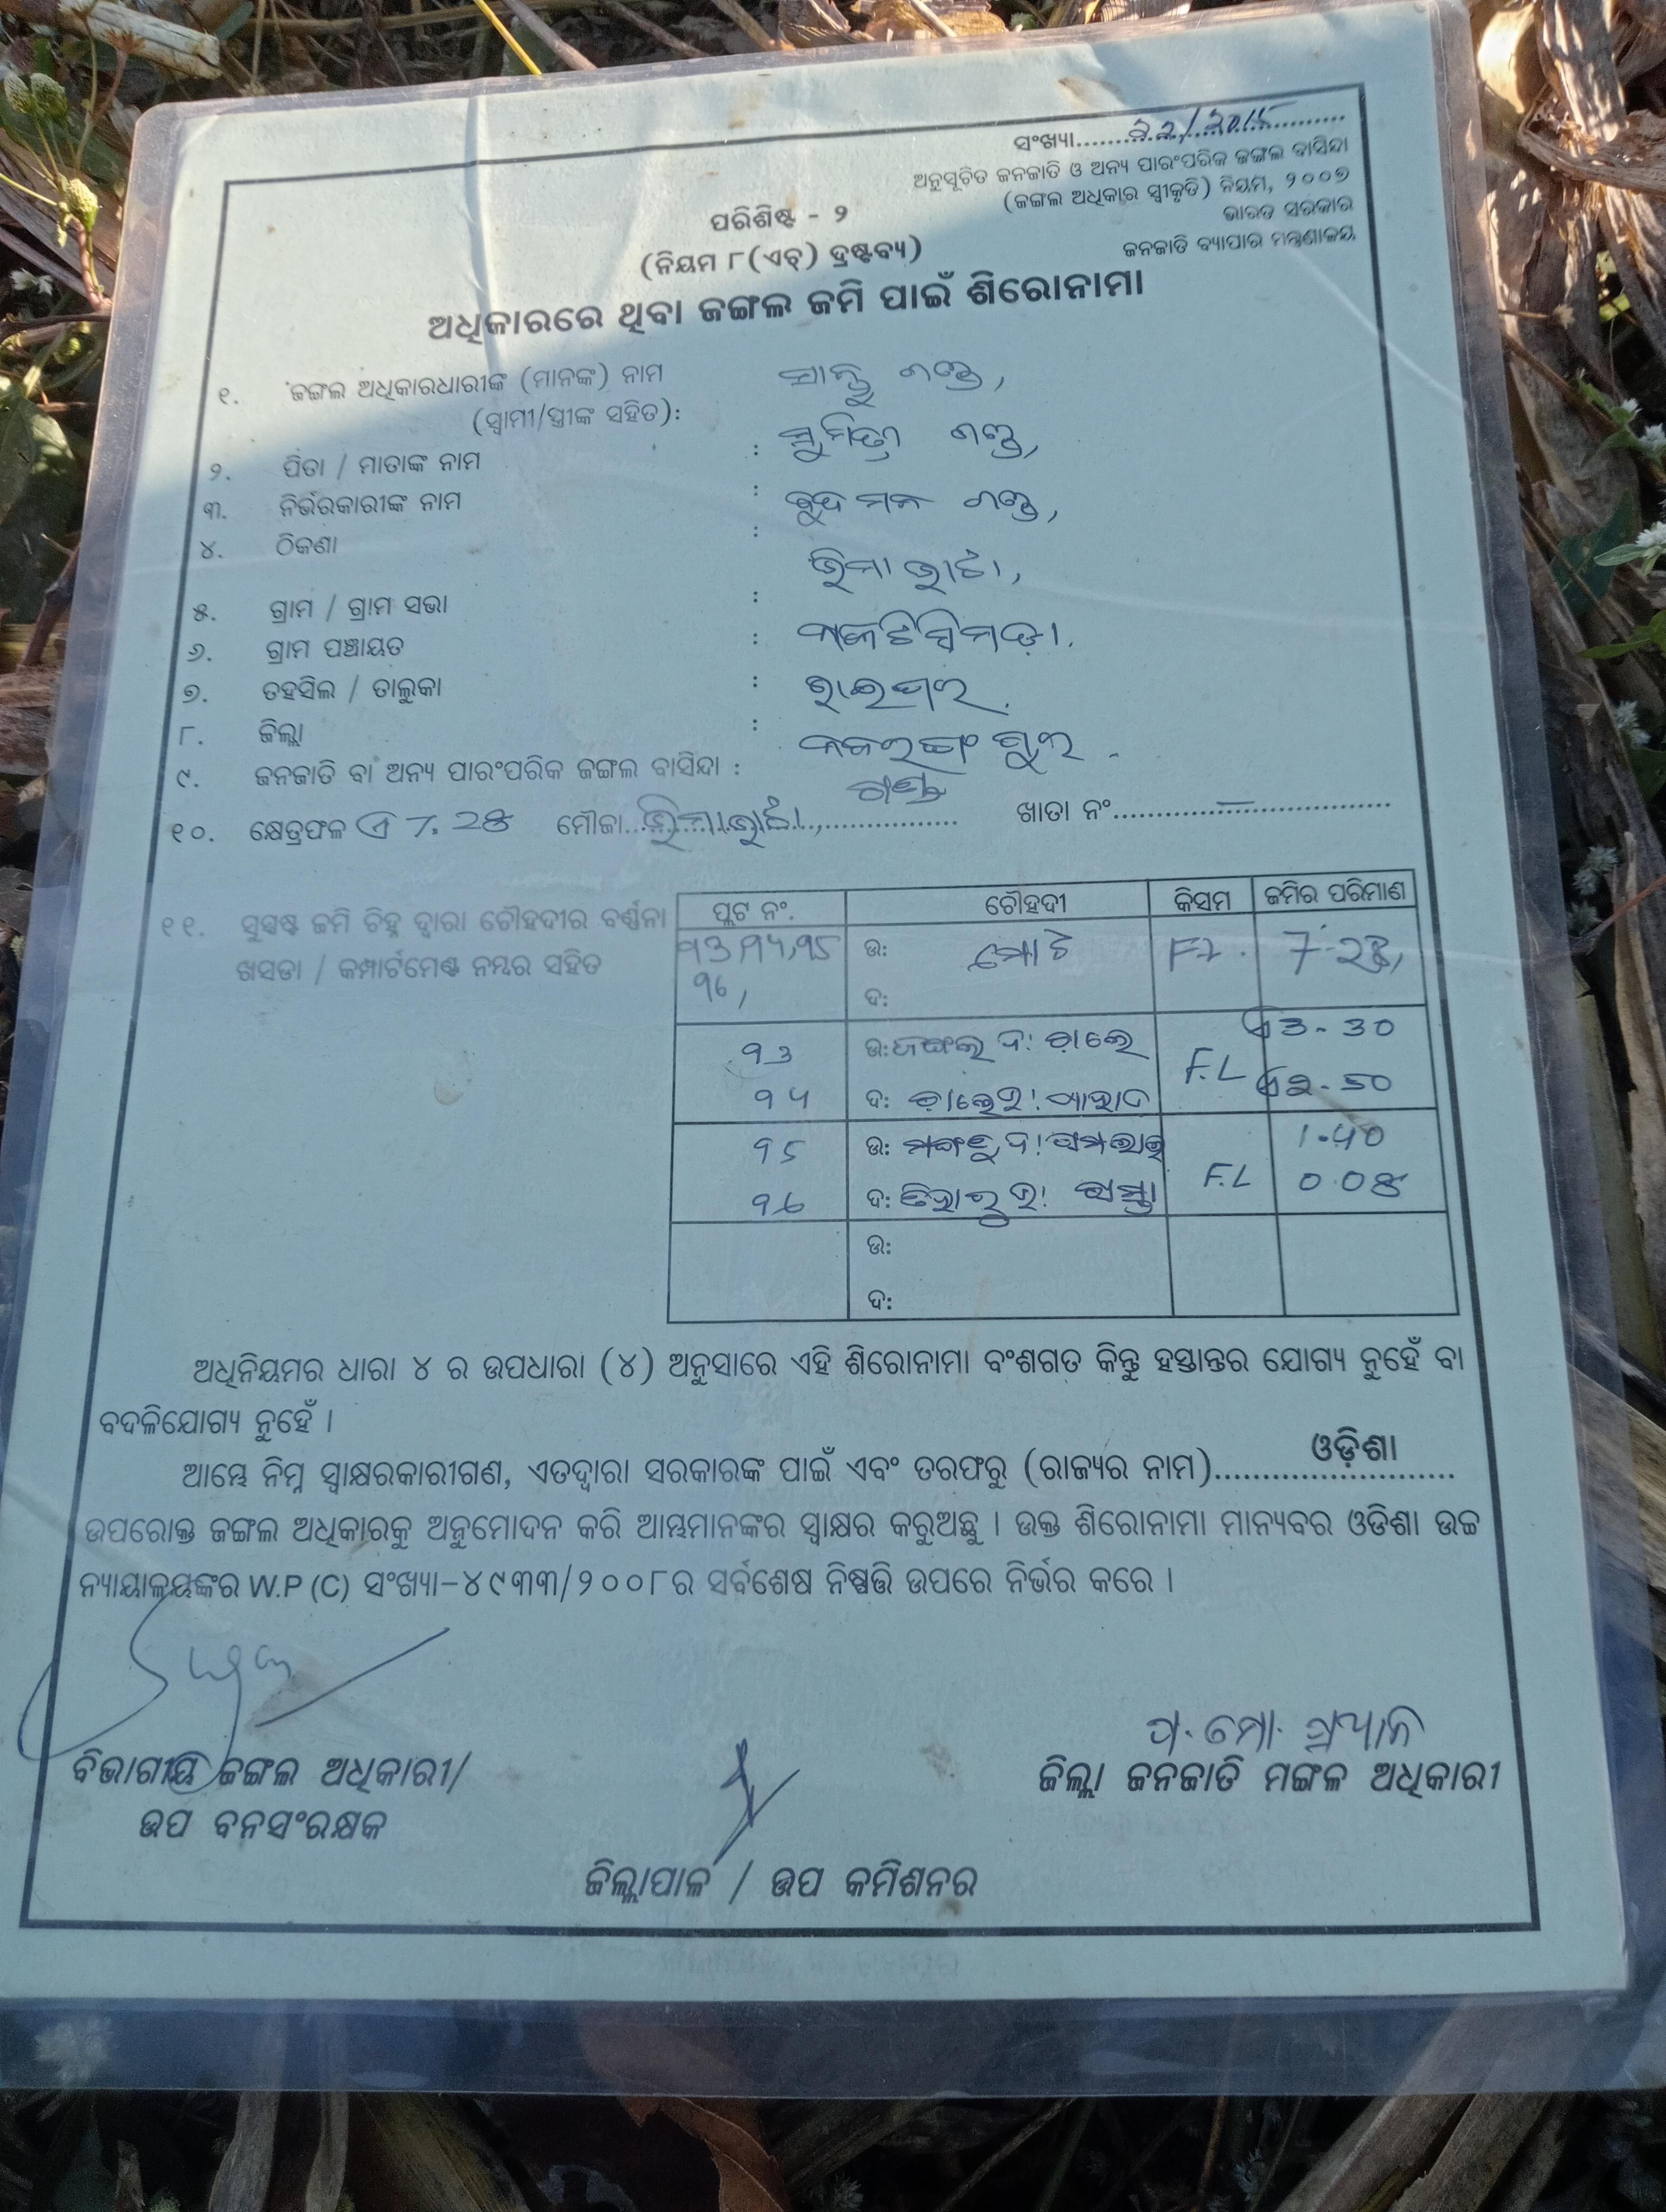 ସଂଖ୍ୟା
ଅନୁସୂଚିତ ଜନଜାତି ଓ ଅନ୍ୟ ପାରଂପରିକ ଜଙ୍ଗଲ ବାସିନ୍ଦା
(ଜଙ୍ଗଲ ଅଧିକାର ସ୍ୱୀକୃତି) ନିୟମ, ୨୦୦୭
ଭାରତ ସରକାର
ଜନଜାତି ବ୍ୟାପାର ମନ୍ତ୍ରଣାଳୟ
ପରିଶିଷ୍ଟ - ୨
(ନିୟମ ୮(ଏଚ୍) ଦ୍ରଷ୍ଟବ୍ୟ)
ଅଧିକାରରେ ଥିବା ଜଙ୍ଗଲ ଜମି ପାଇଁ ଶିରୋନାମା
୧. ଜଙ୍ଗଲ ଅଧିକାରଧାରୀଙ୍କ (ମାନଙ୍କ) ନାମ
(ସ୍ୱାମୀ/ସ୍ତ୍ରୀଙ୍କ ସହିତ):
୨. ପିତା / ମାତାଙ୍କ ନାମ : ସୁମିତ୍ରା ଗଣ୍ଡ,
୩. ନିର୍ଭରକାରୀଙ୍କ ନାମ : ବୁଦ ମନ ଗଣ୍ଡ,
୪. ଠିକଣା :
୫. ଗ୍ରାମ / ଗ୍ରାମ ସଭା :
୬. ଗ୍ରାମ ପଞ୍ଚାୟତ :
୭. ତହସିଲ / ତାଲୁକା : ରାଇଘର.
୮. ଜିଲ୍ଲା : ନବରଙ୍ଗପୁର
୯. ଜନଜାତି ବା ଅନ୍ୟ ପାରଂପରିକ ଜଙ୍ଗଲ ବାସିନ୍ଦା : ଗଣ୍ଡ
୧୦. କ୍ଷେତ୍ରଫଳ ଏ 7.28 ମୌଜା ଖାତା ନଂ
୧୧. ସୁସ୍ପଷ୍ଟ ଜମି ଚିହ୍ନ ଦ୍ୱାରା ଚୌହଦୀର ବର୍ଣ୍ଣନା
ଖସଡା / କମ୍ପାର୍ଟମେଣ୍ଟ ନମ୍ବର ସହିତ
ପ୍ଲଟ ନଂ. ଚୌହଦୀ କିସମ ଜମିର ପରିମାଣ
୧୩,୧୪,୧୫ ଉ: ମୋଟ 7.28,
୧୬, ଦ:
୧୩ ଉ: ଜଙ୍ଗଲ F.L ଏ 3-30
୧୪ ଦ: ଏ 2-50
୧୫ ଉ: F.L 1.40
୧୬ ଦ: 0.08
ଉ:
ଦ:
ଅଧିନିୟମର ଧାରା ୪ ର ଉପଧାରା (୪) ଅନୁସାରେ ଏହି ଶିରୋନାମା ବଂଶଗତ କିନ୍ତୁ ହସ୍ତାନ୍ତର ଯୋଗ୍ୟ ନୁହେଁ ବା
ବଦଳିଯୋଗ୍ୟ ନୁହେଁ ।
ଆମ୍ଭେ ନିମ୍ନ ସ୍ୱାକ୍ଷରକାରୀଗଣ, ଏତଦ୍ୱାରା ସରକାରଙ୍କ ପାଇଁ ଏବଂ ତରଫରୁ (ରାଜ୍ୟର ନାମ) ଓଡ଼ିଶା
ଉପରୋକ୍ତ ଜଙ୍ଗଲ ଅଧିକାରକୁ ଅନୁମୋଦନ କରି ଆମ୍ଭମାନଙ୍କର ସ୍ୱାକ୍ଷର କରୁଅଛୁ । ଉକ୍ତ ଶିରୋନାମା ମାନ୍ୟବର ଓଡିଶା ଉଚ୍ଚ
ନ୍ୟାୟାଳୟଙ୍କର W.P (C) ସଂଖ୍ୟା-୪୯୩୩/୨୦୦୮ର ସର୍ବଶେଷ ନିଷ୍ପତ୍ତି ଉପରେ ନିର୍ଭର କରେ ।
ବିଭାଗୀୟ ଜଙ୍ଗଲ ଅଧିକାରୀ/
ଉପ ବନସଂରକ୍ଷକ
ଜିଲ୍ଲା ଜନଜାତି ମଙ୍ଗଳ ଅଧିକାରୀ
ଜିଲ୍ଲାପାଳ / ଉପ କମିଶନର